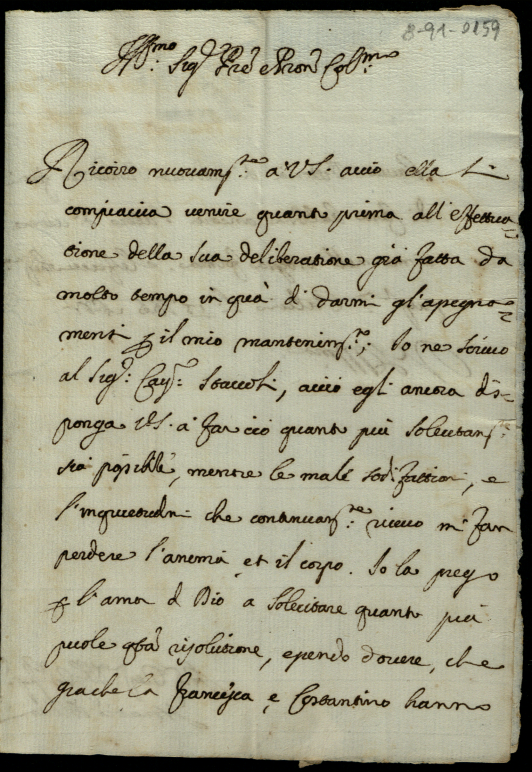 8-91-0159
Ill.mo Sig.r Pre e Pron Col.mo
Ricorro nuovam.te à VS. acciò ella si
compiaccia venire quanto prima all'effettua-
tione della sua deliberatione già fatta da
molto tempo in quà di darmi gl'apegna-
menti p il mio mantenim.to; Io ne scrivo
al Sig.r Cap.n Staccoli, acciò egli ancora dis-
ponga VS. à far ciò quanto più solecitam.te
sia possibile, mentre le male sodisfattioni, e
l'inquietudini che continuam.te ricevo mi fan
perdere l'anema et il corpo. Io la prego
p l'amor d Dio à solecitare quanto più
puole qta risolutione, essendo dovere, che
giache la Francesca e Costantino hanno